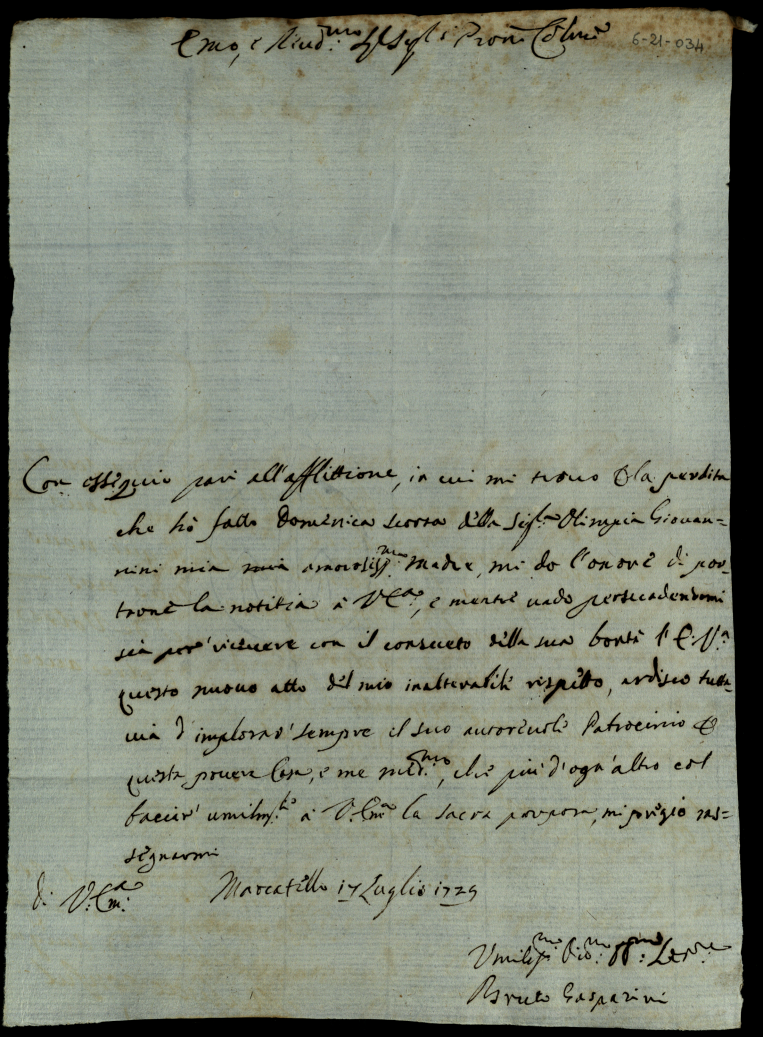 Emo, e Revd.mo Sig.r Sig.r e Pron Colmo 6-21-034
Con ossequio pari all'afflittione, in cui mi trovo p la perdita
che hò fatto Domenica scorsa della Sig.ra Olimpia Giovan=
nini mia amorosiss.ma Madre, mi do l'onore di por=
trarne la notitia à V.Em.a, e mentre vado persuadendomi
sia per ricevere con il consueto della sua bontà l'E.V.a
questo nuovo atto del mio inalterabile rispetto, ardisco tutta=
via d'implorar' sempre il suo autorevole Patrocinio p
questa povera Casa, e me med.mo, che più d'ogn'altro col
baciar' umilm.te à V.Em.a la sacra porpora, mi pregio ras=
segnarmi
di V.Em.a Mercatello 17 Luglio 1729
Umiliss.mo Dio.mo Oss.mo Ser.re
Bruto Gasparini